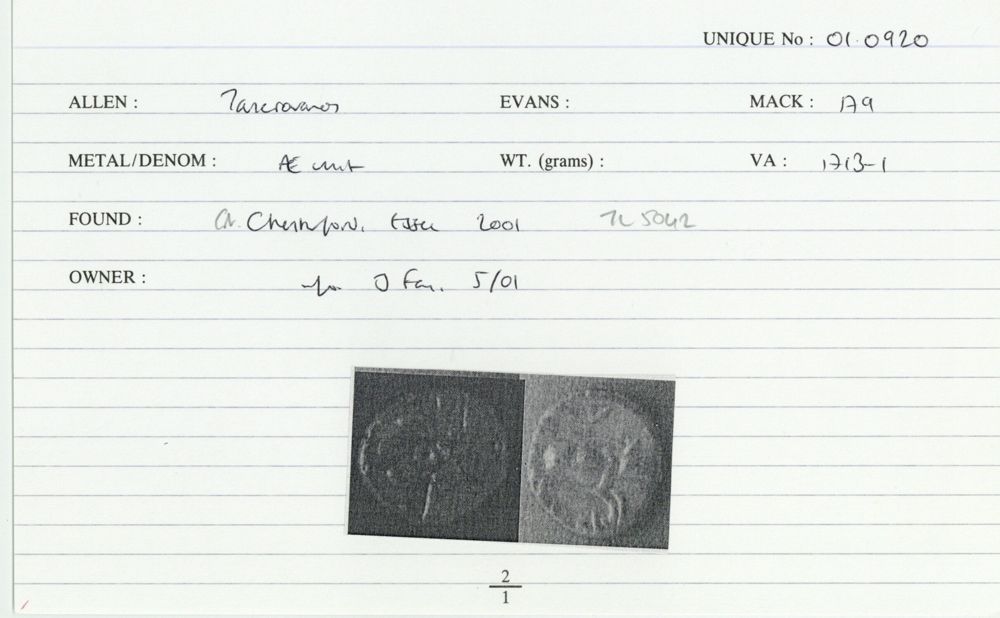 UNIQUE No : 01.0920
ALLEN : Tasciovanos EVANS : MACK : 179
METAL/DENOM : Æ unit WT. (grams) : VA : 1713-1
FOUND : Gt. Chesterford, Essex 2001 TL 5042
OWNER : J 5/01
2
1